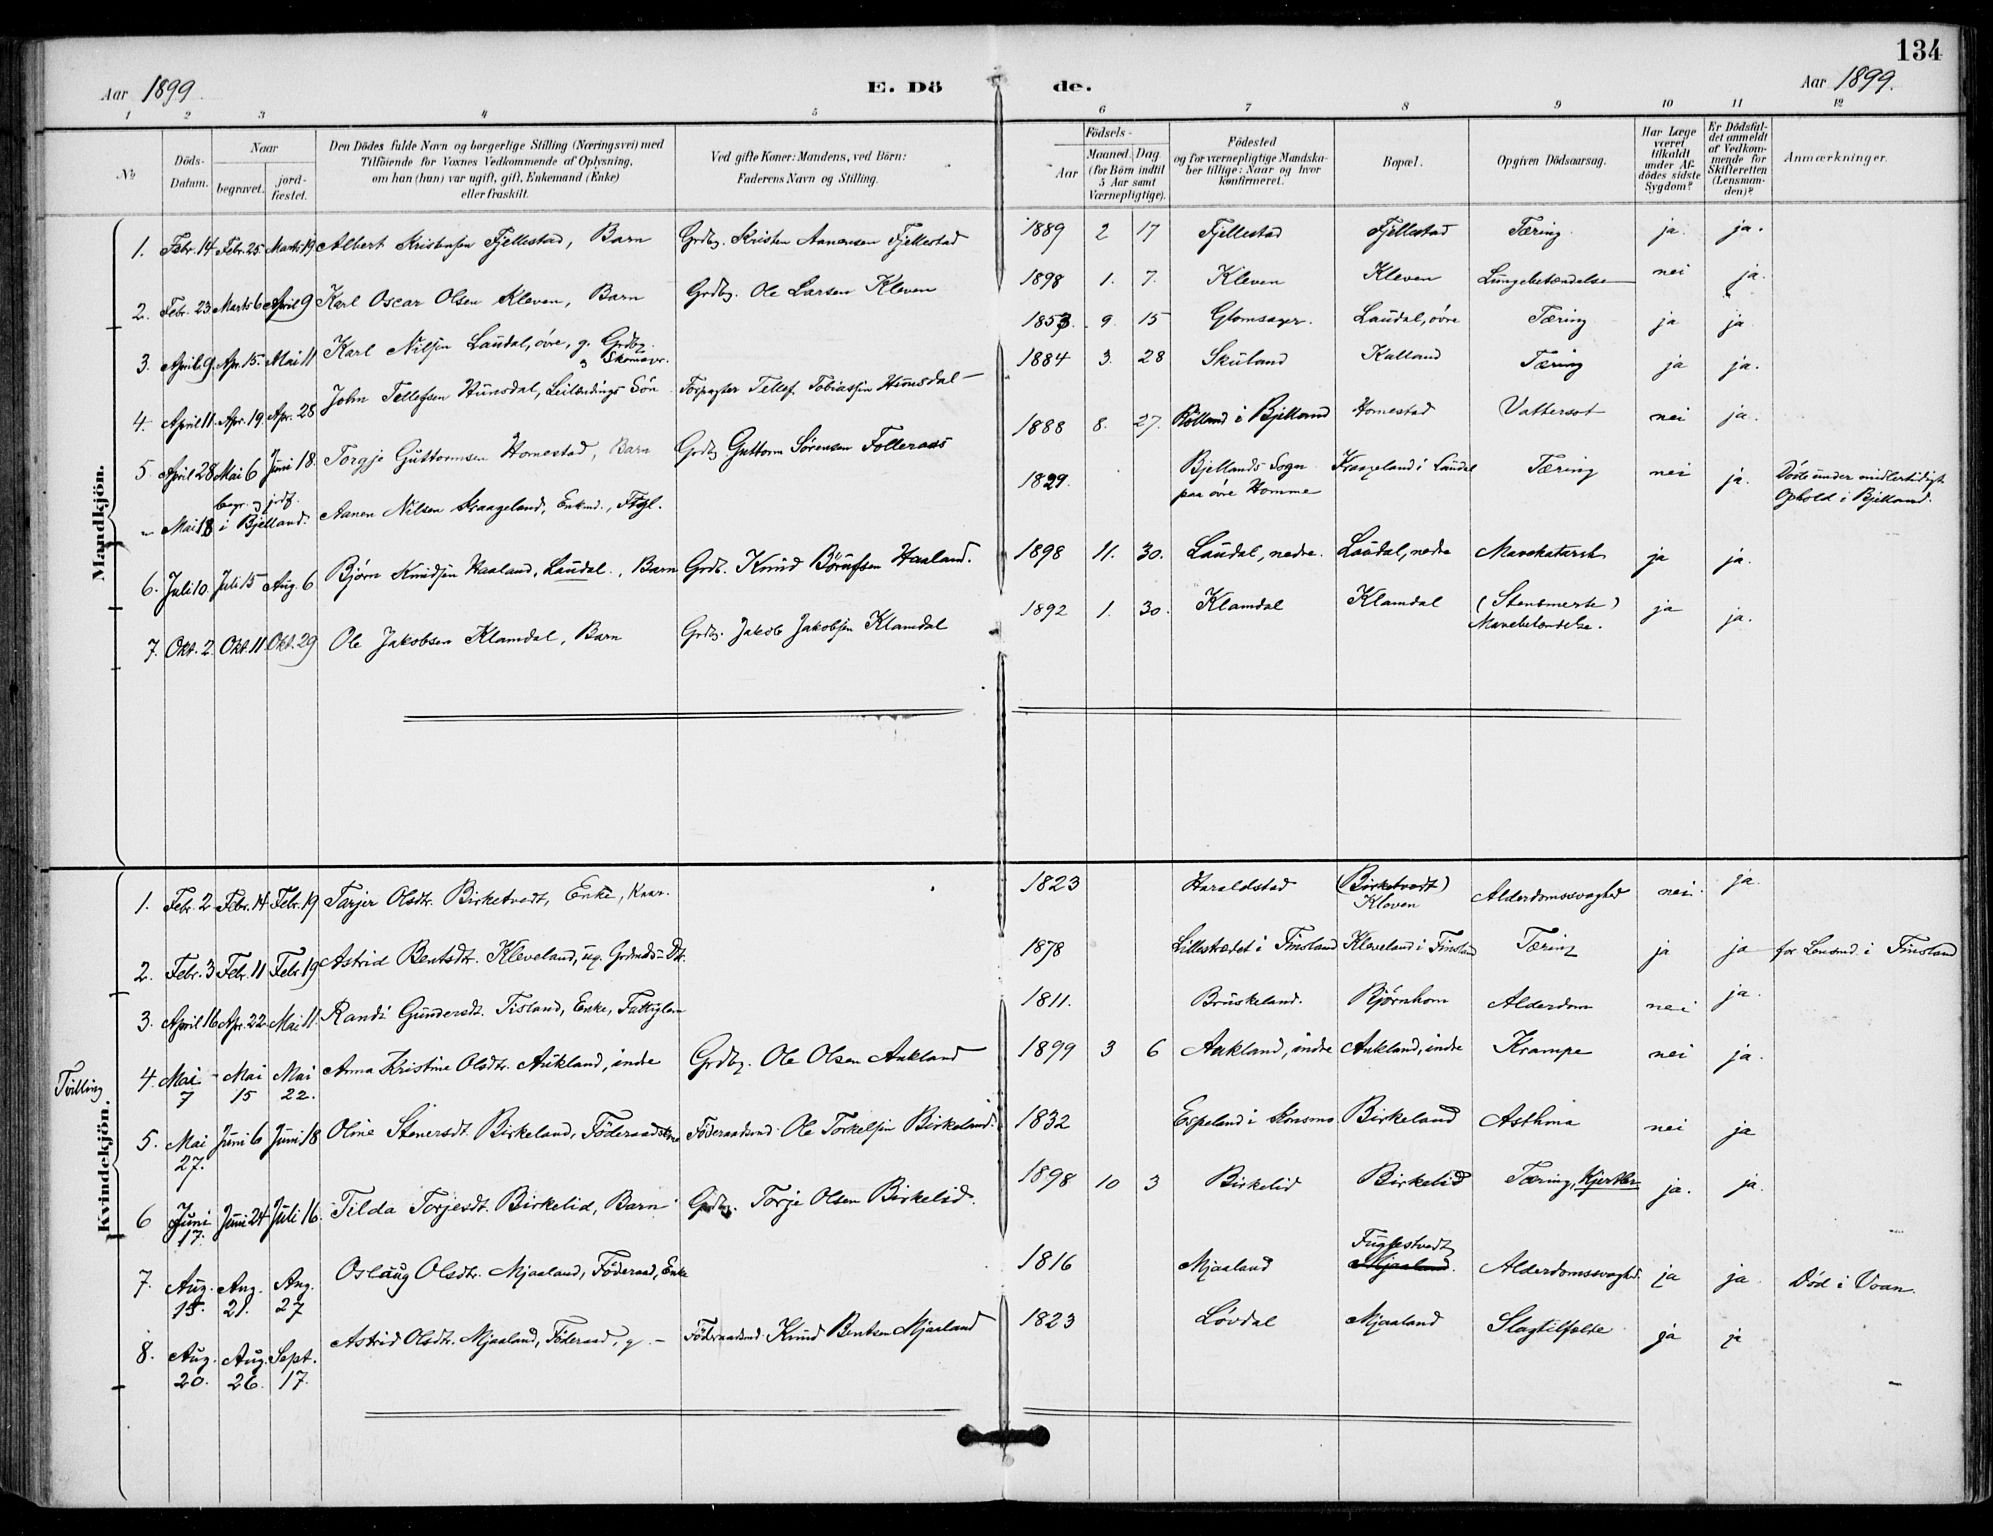 134
Aar 1899.
E. Dö
de.
Aar 1899.
1 2 3 4 5 6 7 8 9 10 11 12
No
Döds-Datum.
Naar
begravet.
jord-fæstet.
Den Dödes fulde Navn og borgerlige Stilling (Næringsvei) med
Tilföiende for Voxnes Vedkommende af Oplysning,
om han (hun) var ugift, gift, Enkemand (Enke)
eller fraskilt.
Ved gifte Koner: Mandens, ved Börn:
Faderens Navn og Stilling.
Födsels-
Aar
Maaned. Dag
(for Börn indtil
5 Aar samt
Værnepligtige).
Födested
og for værnepligtige Mandska-
ber tillige: Naar og hvor
konfirmeret.
Bopæl.
Opgiven Dödsaarsag.
Har Læge
været
tilkaldt
under Af-
dödes sidste
Sygdom?
Er Dödsfal-
det anmeldt
af Vedkom-
mende for
Skifteretten
(Lensman-
den)?
Anmærkninger.
Mandkjön.
1. Febr. 14 Febr. 25 Marts 19 Albert Kristensen Fjellestad, Barn Grdbg. Kristen Aanensen Fjellestad 1889 2 17 Fjellestad Fjellestad Tæring. ja. ja.
2. Febr. 23 Marts 6 April 9 Karl Oscar Olsen Kleven, Barn Grdbg. Ole Larsen Kleven 1898 1. 7. Kleven Kleven Lungebetændelse nei ja.
3. April 9. Apr. 15. Mai 11 Karl Nilsen Laudal, övre, g. Grdbg. 1853. 9. 15 Glomsager. Laudal, övre Tæring ja ja
4. April 11. Apr. 19. Apr. 28 John Tellefsen Hunsdal, Leilændings Sön Forpagter Tellef Tobiassen Hunsdal 1884 3. 28 Skuland Kalland Tæring ja ja.
5 April 28 Mai 6 Juni 18. Torgje Guttormsen Homestad, Barn Grdbg Guttorm Sørensen Folleraas 1888 8. 27. i Bjelland Homestad Vattersot nei ja.
" Mai 18 begr. og jrdf. i Bjelland. Aanen Nilsen Kraageland, Enkmd., Ftgl. 1829. Bjellands Sogn paa övre Homme Kraageland i Laudal Tæring nei ja. Döde under midlertidigt Ophold i Bjelland.
6. Juli 10. Juli 15 Aug. 6 Bjørn Knudsen Haaland, Laudal., Barn Grdb. Knud Börufsen Haaland. 1898 11. 30. Laudal, nedre. Laudal, nedre Mavekatarrh ja ja.
7. Okt. 2. Okt. 11 Okt. 29 Ole Jakobsen Klamdal, Barn Grdbg. Jakob Jakobsen Klamdal 1892 1. 30. Klamdal Klamdal (Stensmerte) Mavebetændelse. ja ja.
Kvindekjön.
1. Febr. 2 Febr. 14 Febr. 19 Tarjer Olsdtr. Birketvedt, Enke, Kaar. 1823 Haraldstad (Birketvedt) Kleven Alderdomssvaghed nei. ja.
2. Febr. 3 Febr. 11 Febr 19 Astrid Bentsdtr. Kleveland, ug. Grdmds-Dtr. 1878 Lillestrædet i Finsland Kleveland i Finsland Tæring ja ja for Lensmd. i Finsland
3. April 16 Apr. 22 Mai 11. Randi Gundersdt. Tisland, Enke, Fattiglem 1811. Bruskeland. Bjørnhom Alderdom nei ja.
Tvilling
4. Mai 7 Mai 15 Mai 22. Anna Kristine Olsdtr. Aukland, indre Grdbg. Ole Olsen Aukland 1899 3 6 Aukland, indre Aukland, indre Krampe nei ja.
5. Mai 27. Juni 6 Juni 18 Oline Stenersdt. Birkeland, Föderaadskone Föderaadsmd. Ole Torkelsen Birkeland. 1832 Espeland i Konsmo. Birkeland Asthma nei ja
6 Juni 17. Juni 24 Juli 16. Tilda Torjesdt. Birkelid, Barn Grdbg. Torje Olsen Birkelid. 1898 10 3 Birkelid Birkelid Tæring, Kjertler ja. ja.
7. Aug. 15. Aug. 21. Aug. 27 Oslaug Olsdtr. Mjaaland, Föderaad, Enke 1816 Mjaaland Fuglestvedt Mjaaland. Alderdomssvaghed. ja ja. Död i Vraan.
8. Aug. 20. Aug. 26. Sept. 17. Astrid Olsdtr. Mjaaland, Föderaad, g. Föderaadsmd. Knud Bentsen Mjaaland 1823 Løvdal Mjaaland Slagtilfælde ja ja